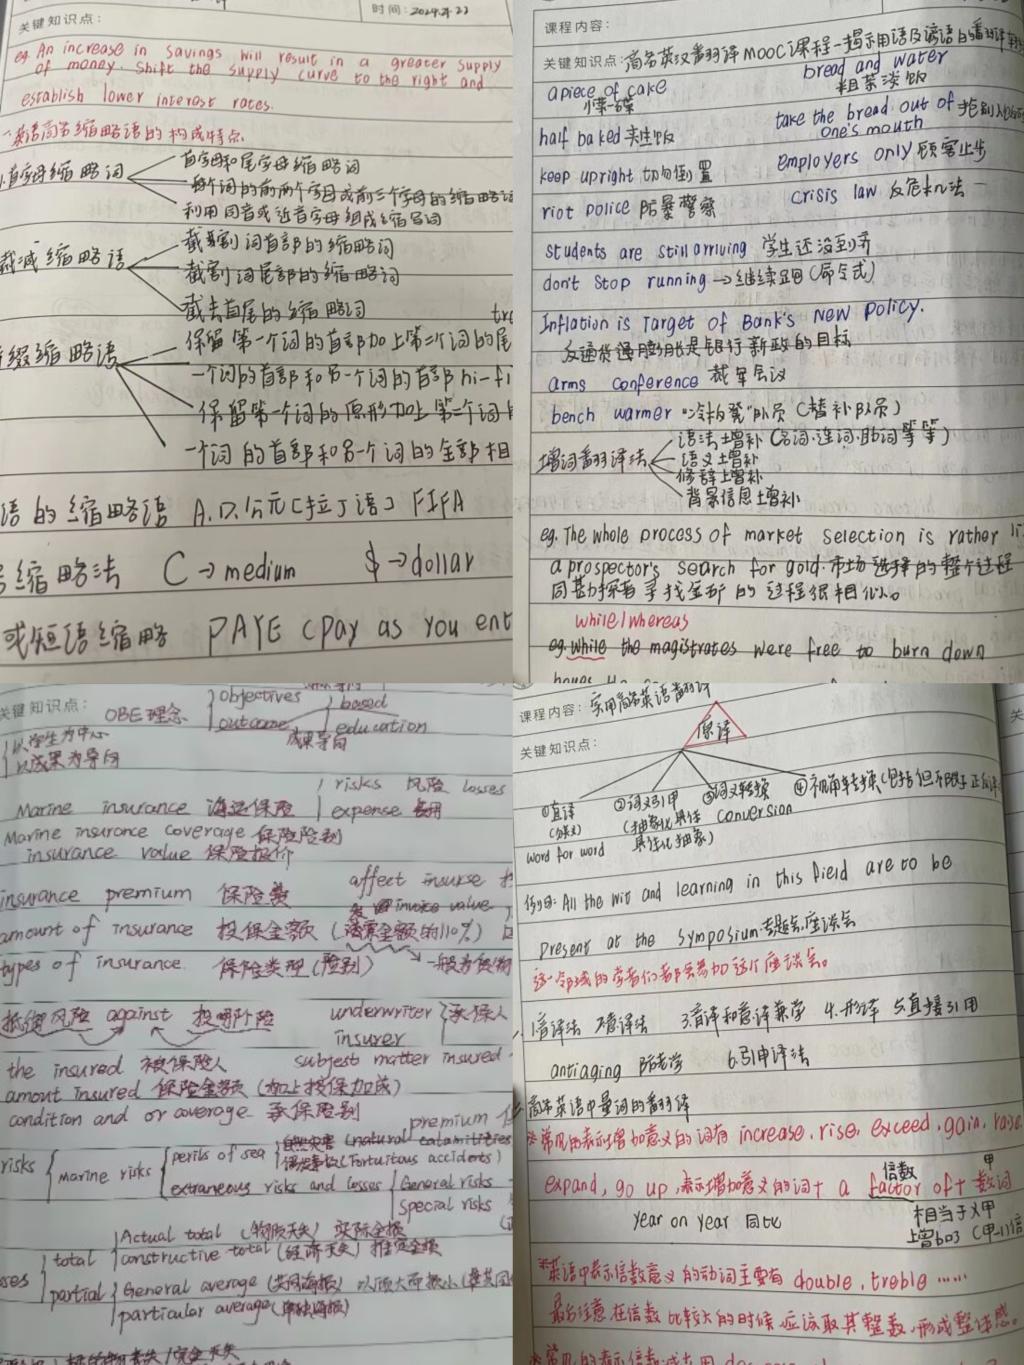 关键知识点：
时间：2024.4.23
eg. An increase in savings will result in a greater supply
of money. Shift the supply curve to the right and
establish lower interest rates.
一.英语商务缩略语的构成特点
1.首字母缩略词
首字母和尾字母缩略词
每个词的前两个字母或前三个字母的缩略词
利用同音或近音字母组成缩写词
裁减缩略语
截割词首部的缩略词
截割词尾部的缩略词
截去首尾的缩略词
缀缩略语
保留第一个词的首部加上第二个词的尾
一个词的首部和另一个词的首部 hi-fi
保留第一个词的原形加上第二个词
一个词的首部和另一个词的全部相
语的缩略语 A.D.公元（拉丁语） FIFA
缩略法 C→medium $→dollar
或短语缩略 PAYE (pay as you ent
课程内容：
关键知识点：商务英汉翻译MOOC课程-揭示用语及谚语的翻译
a piece of cake 小菜一碟
bread and water 粗茶淡饭
half baked 夹生饭
take the bread out of one's mouth
keep upright 切勿倒置
employers only 顾客止步
riot police 防暴警察
crisis law 反危机法
students are still arriving 学生还没到齐
don't stop running→继续跑(命令式)
Inflation is Target of Bank's New Policy.
反通货通膨胀是银行新政的目标
arms conference 裁军会议
bench warmer "冷板凳"队员（替补队员）
增词翻译法
语法上增补（名词.连词.助词等等）
语义上增补
修辞上增补
背景信息上增补
eg. The whole process of market selection is rather li
a prospector's search for gold. 市场选择的整个过程
同勘探者寻找金矿的过程很相似。
while/whereas
eg. while the magistrates were free to burn down
关键知识点：
OBE理念
objectives
outcome
based
education
成果导向
以学生为中心
以成果为导向
Marine insurance 海运保险
risks 风险 losses
expense 费用
Marine insurance coverage 保险险别
insurance value 保险报价
insurance premium 保险费
invoice value
amount of insurance 投保金额（发票金额的110%）
types of insurance 保险类型（险别）
抵御风险 against 投明阶险
underwriter
insurer
承保人
the insured 被保险人 subject matter insured
amount insured 保险金额（加上投保加成）
condition and or coverage 承保险别
premium
risks
marine risks
perils of sea
自然灾害 (natural calamities
偶发事故 (Fortuitous accidents)
extraneous risks and losses
General risks
special risks
total
Actual total (物质灭失) 实际全损
constructive total (经济灭失) 推定全损
partial
General average (共同海损) 以顾大而损小
particular average (单独海损)
课程内容：实用商务英语翻译
关键知识点：
原译
①直译
word for word
②词义引申
（抽象化具体
具体化抽象）
③词义转换
conversion
④视角转换（包括但不限于正反译
例句: All the wit and learning in this field are to be
present at the symposium.专题会.座谈会
这一领域的学者们都要参加这个座谈会。
1.音译法 2意译法 3.音译和意译兼学 4.形译 5直接引用
antiaging 防老学 6.引申译法
商务英语中量词的翻译
※常见的表示增加意义的词有 increase, rise, exceed, gain, raise
倍数 甲
expand, go up, 表示增加意义的词+ a factor of+ 数词
year on year 同比
相当于乂甲
※英语中表示倍数意义的动词主要有 double, treble ……
最后注意在倍数比较大的时候应该取其整数，形成整体感。